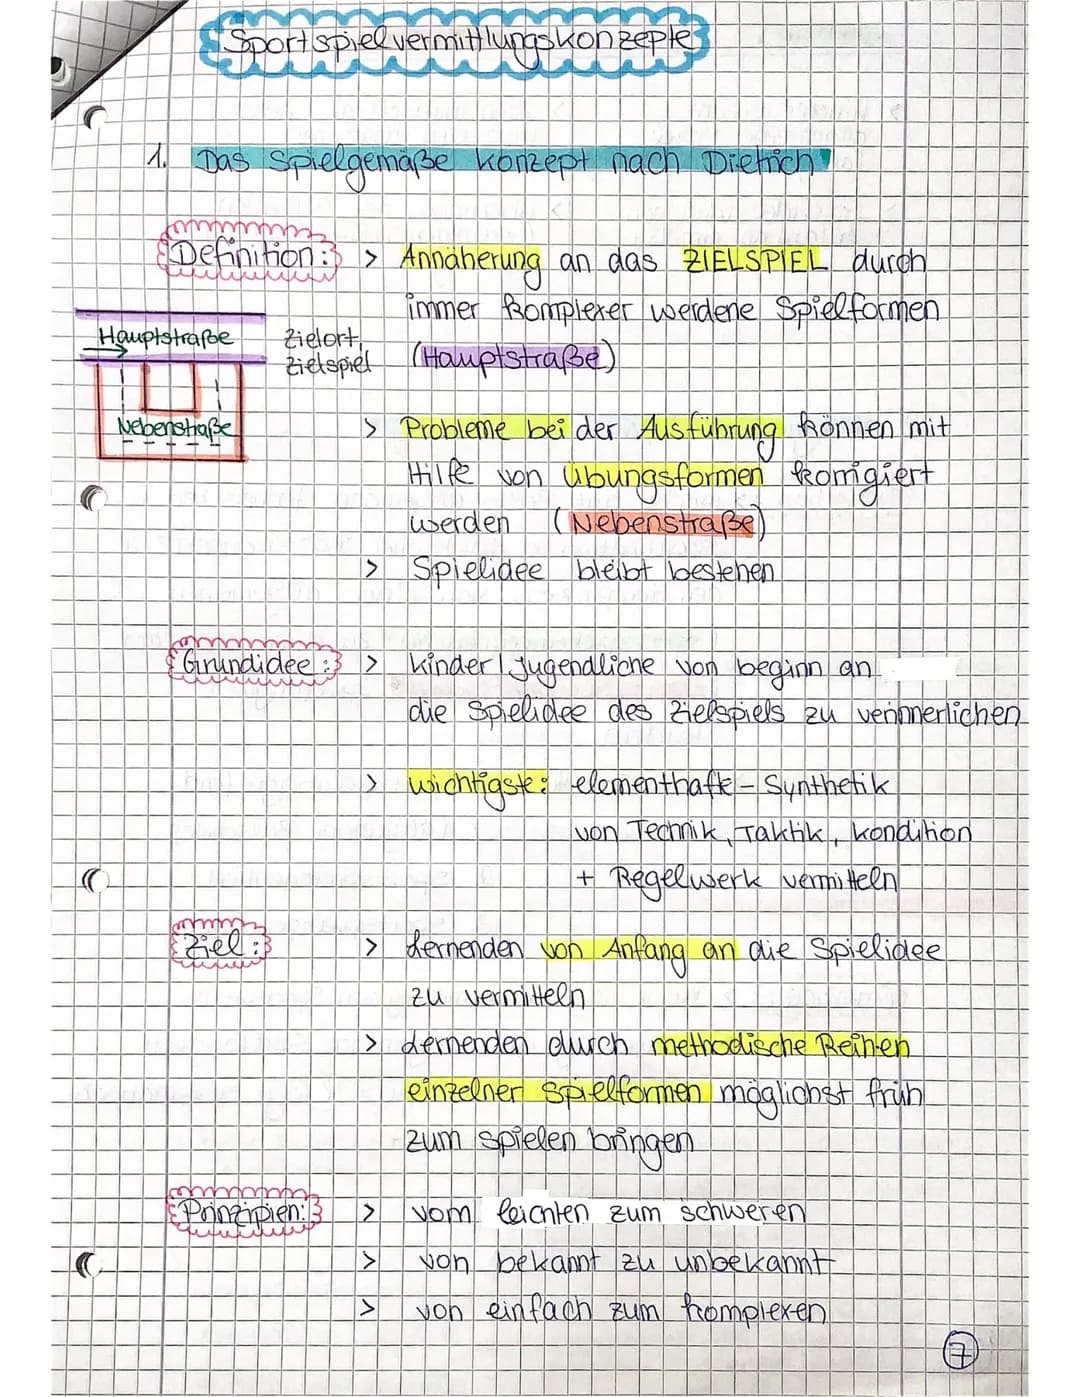 Sportspielvermittlungskonzepte
1. Das Spielgemäße konzept nach Dietrich
Definition: > Annäherung an das ZIELSPIEL durch
immer komplexer werdene Spielformen
(Hauptstraße)
Hauptstraße
Zielort,
Zielspiel
Nebenstraße
> Probleme bei der Ausführung können mit
Hilfe von Übungsformen korrigiert
werden (Nebenstraße)
> Spielidee bleibt bestehen
Grundidee: > kinder/jugendliche von beginn an
die Spielidee des Zielspiels zu verinnerlichen
> wichtigste: elementhafte - Synthetik
von Technik, Taktik, kondition
+ Regelwerk vermitteln
Ziel: > Lernenden von Anfang an die Spielidee
zu vermitteln
> Lernenden durch methodische Reihen
einzelner Spielformen möglichst früh
zum spielen bringen
Prinzipien: > vom leichten zum schweren
> von bekannt zu unbekannt
> von einfach zum komplexen
7